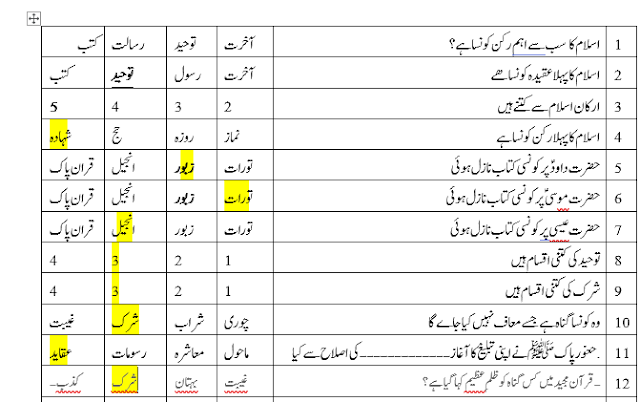 1 اسلام کا سب سے اہم رکن کونسا ہے؟ آخرت توحید رسالت کتب
2 اسلام کا پہلا عقیدہ کونسا ھے آخرت رسول توحید کتب
3 ارکان اسلام سے کتنے ہیں 2 3 4 5
4 اسلام کا پہلا رکن کونسا ہے نماز روزہ حج شہادہ
5 حضرت داودؑ پر کونسی کتاب نازل ہوئی تورات زبور انجیل قران پاک
6 حضرت موسیٰؑ پر کونسی کتاب نازل ہوئی تورات زبور انجیل قران پاک
7 حضرت عیسیٰ پر کونسی کتاب نازل ہوئی تورات زبور انجیل قران پاک
8 توحید کی کتنی اقسام ہیں 1 2 3 4
9 شرک کی کتنی اقسام ہیں 1 2 3 4
10 وہ کونسا گناہ ہے جسے معاف نہیں کیا جاے گا چوری شراب شرک غیبت
11 .حضور پاک ﷺ نے اپنی تبلیغ کا آغاز_____________کی اصلاح سے کیا ماحول معاشرہ رسومات عقاید
12 ۔قرآن مجید میں کس گناہ کو ظلم عظیم کہا گیا ہے؟ غیبت بہتان شرک کذب۔